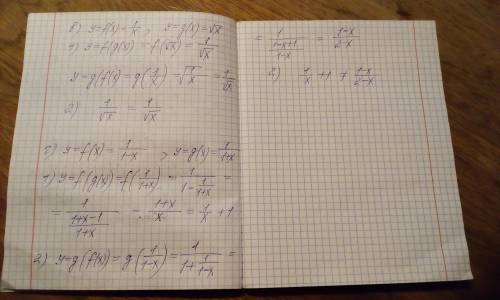 в) y=f(x)=1/x, y=g(x)=√x
1) y=f(g(x))=f(√x)=1/√x
y=g(f(x))=g(1/x)=√(1/x)=1/√x
2) 1/√x = 1/√x
г) y=f(x)=1/(1-x), y=g(x)=1/(1+x)
1) y=f(g(x))=f(1/(1+x))=1/(1-1/(1+x))=
=1/((1+x-1)/(1+x))=(1+x)/x=1/x+1
2) y=g(f(x))=g(1/(1-x))=1/(1+1/(1-x))=
=1/((1-x+1)/(1-x))=(1-x)/(2-x)
2) 1/x+1≠(1-x)/(2-x)